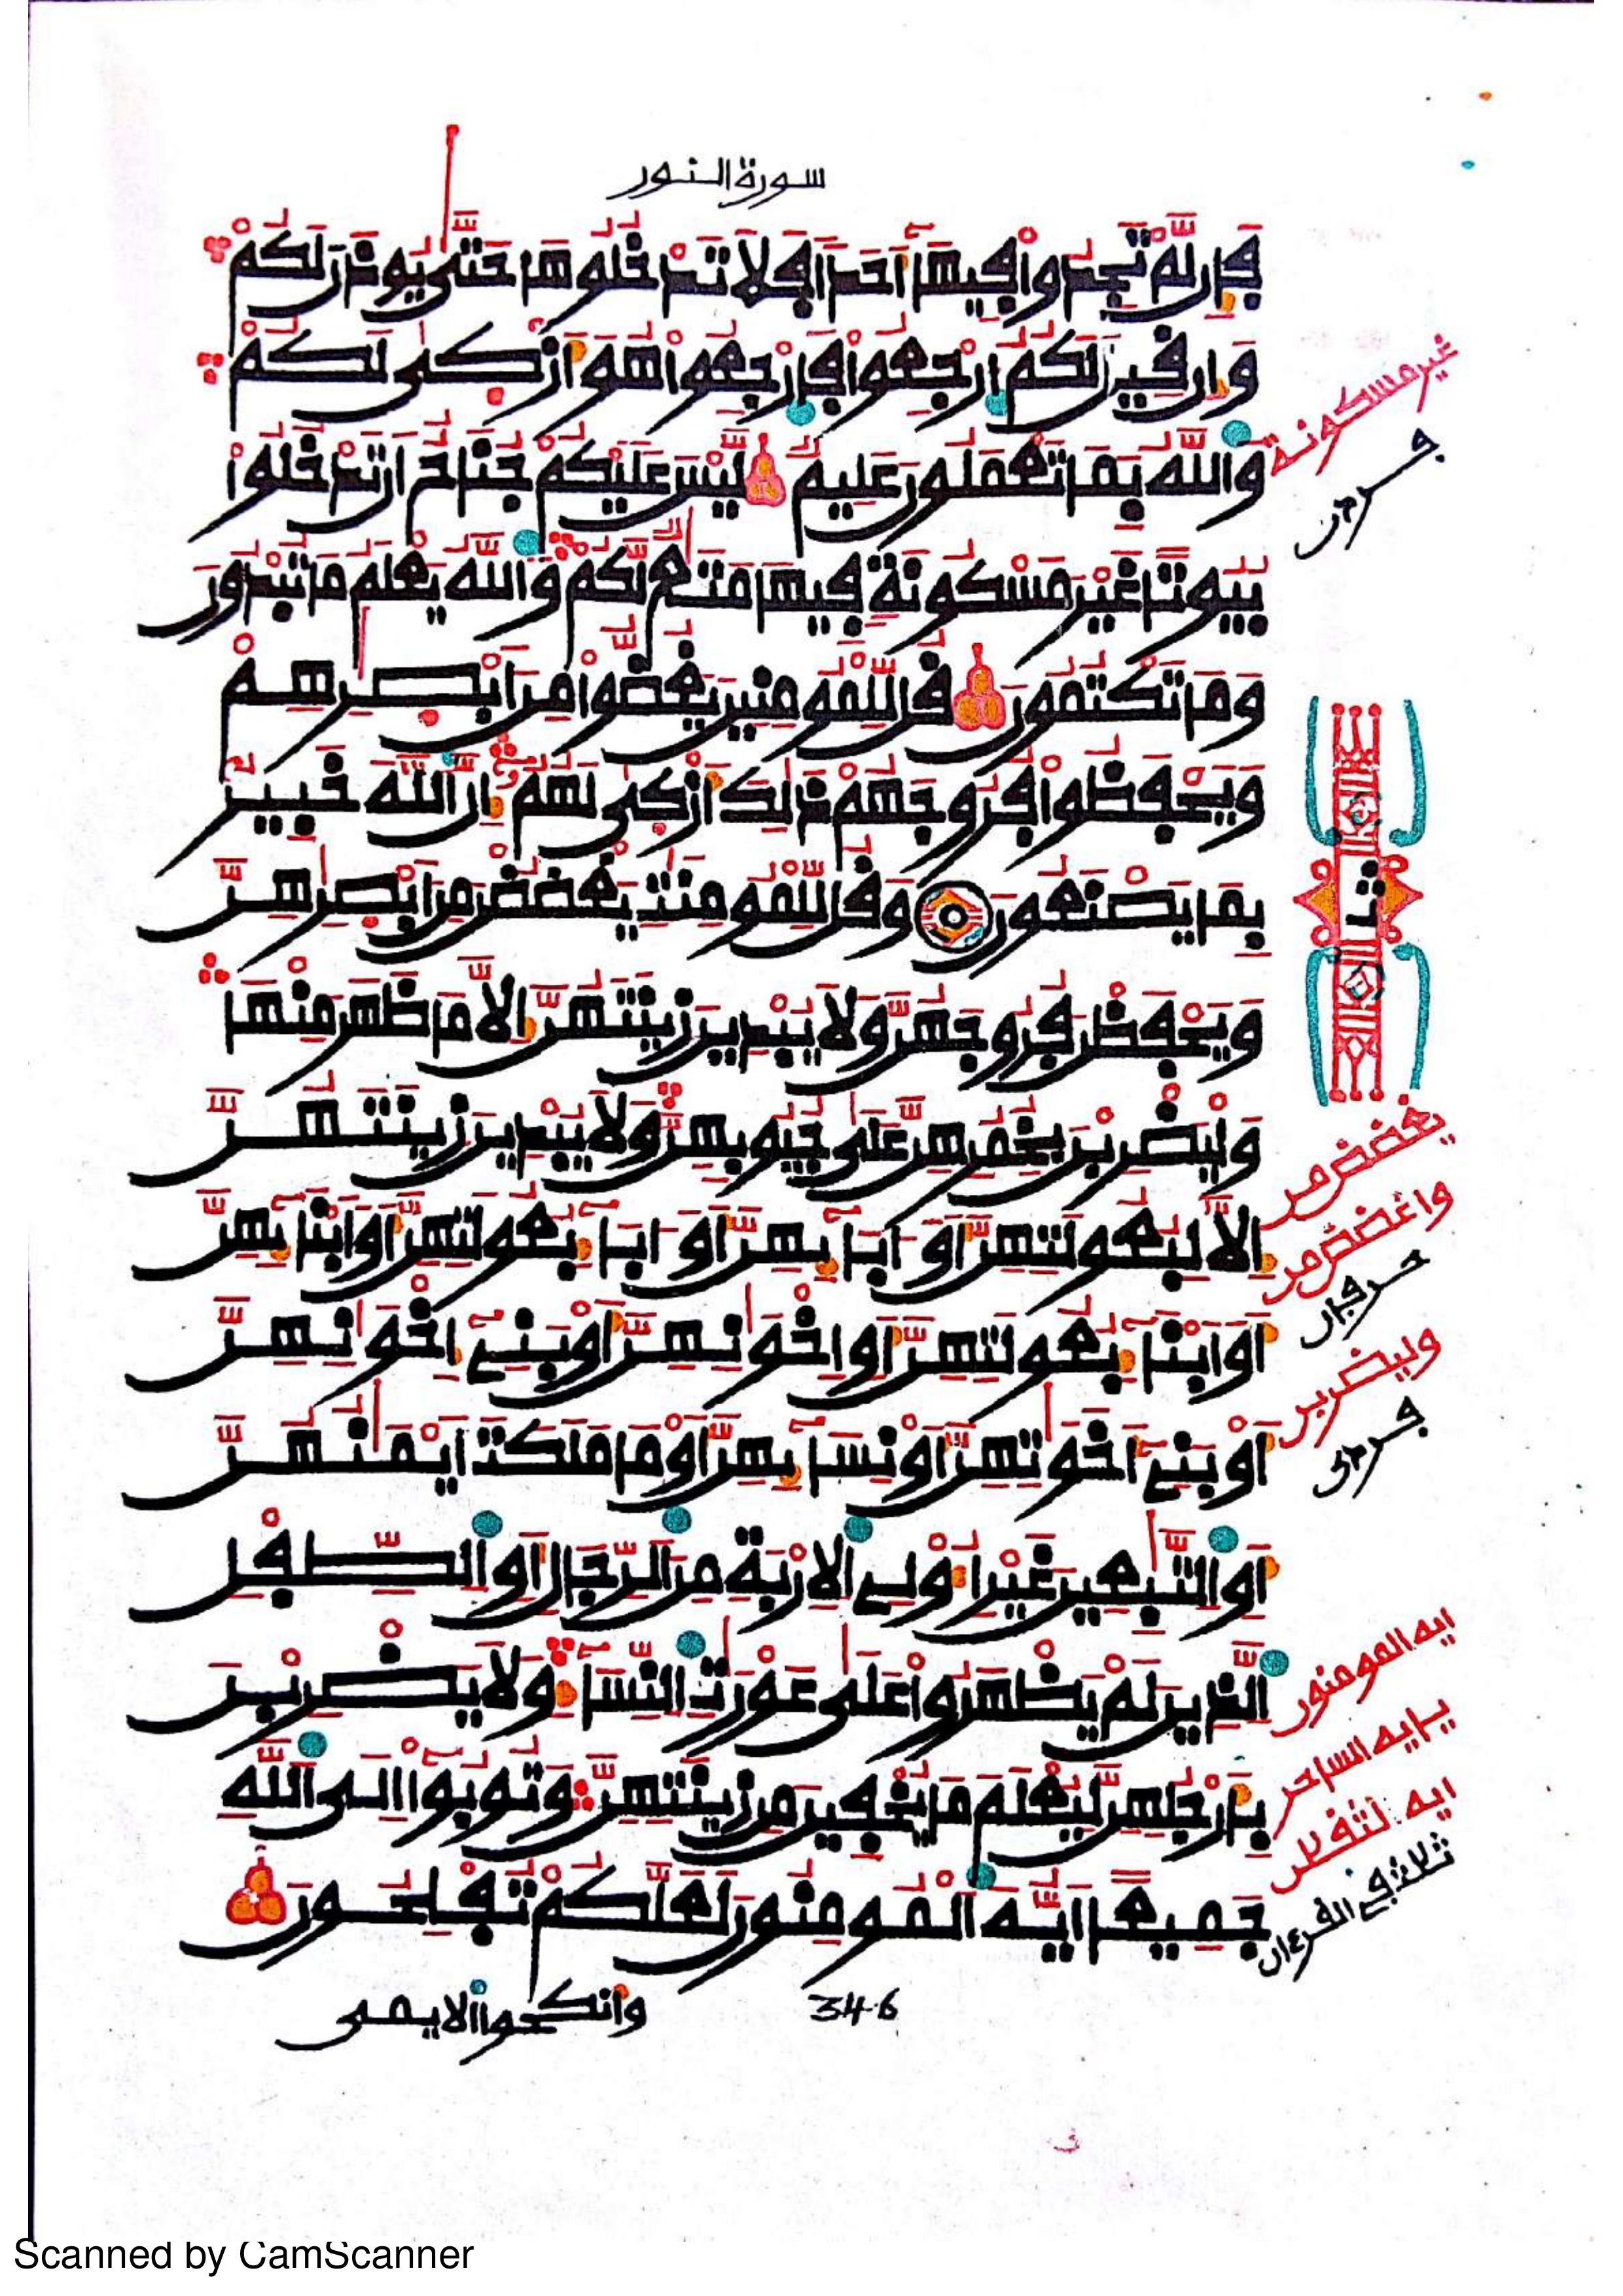 سورة النور
فَإِن لَّمْ تَجِدُوا فِيهَا أَحَدًا فَلَا تَدْخُلُوهَا حَتَّىٰ يُوذَنَ لَكُمْ
وَإِن قِيلَ لَكُمُ ارْجِعُوا فَارْجِعُوا هُوَ أَزْكَىٰ لَكُمْ
وَاللَّهُ بِمَا تَعْمَلُونَ عَلِيمٌ لَّيْسَ عَلَيْكُمْ جُنَاحٌ أَن تَدْخُلُوا
بُيُوتًا غَيْرَ مَسْكُونَةٍ فِيهَا مَتَٰعٌ لَّكُمْ وَاللَّهُ يَعْلَمُ مَا تُبْدُونَ
وَمَا تَكْتُمُونَ قُل لِّلْمُومِنِينَ يَغُضُّوا مِنْ أَبْصَٰرِهِمْ
وَيَحْفَظُوا فُرُوجَهُمْ ذَٰلِكَ أَزْكَىٰ لَهُمْ إِنَّ اللَّهَ خَبِيرٌ
بِمَا يَصْنَعُونَ وَقُل لِّلْمُومِنَٰتِ يَغْضُضْنَ مِنْ أَبْصَٰرِهِنَّ
وَيَحْفَظْنَ فُرُوجَهُنَّ وَلَا يُبْدِينَ زِينَتَهُنَّ إِلَّا مَا ظَهَرَ مِنْهَا
وَلْيَضْرِبْنَ بِخُمُرِهِنَّ عَلَىٰ جُيُوبِهِنَّ وَلَا يُبْدِينَ زِينَتَهُنَّ
إِلَّا لِبُعُولَتِهِنَّ أَوَ ابَآئِهِنَّ أَوَ ابَآءِ بُعُولَتِهِنَّ أَوَ ابْنَآئِهِنَّ
أَوَ ابْنَآءِ بُعُولَتِهِنَّ أَوِ اخْوَٰنِهِنَّ أَوْ بَنِي إِخْوَٰنِهِنَّ
أَوْ بَنِي أَخَوَٰتِهِنَّ أَوْ نِسَآئِهِنَّ أَوْ مَا مَلَكَتَ ايْمَٰنُهُنَّ
أَوِ التَّٰبِعِينَ غَيْرِ أُولِي الِارْبَةِ مِنَ الرِّجَالِ أَوِ الطِّفْلِ
الَّذِينَ لَمْ يَظْهَرُوا عَلَىٰ عَوْرَٰتِ النِّسَآءِ وَلَا يَضْرِبْنَ
بِأَرْجُلِهِنَّ لِيُعْلَمَ مَا يُخْفِينَ مِن زِينَتِهِنَّ وَتُوبُوا إِلَى اللَّهِ
جَمِيعًا أَيُّهَ الْمُومِنُونَ لَعَلَّكُمْ تُفْلِحُونَ
346
وأنكحوا الايمى
غير مسكونة
ثمن
يغضض من
واغضض من
حرفان
وليضربن
ايه المومنون
يايه الساحر
ايه الثقلن
ثلاث في القرءان
Scanned by CamScanner